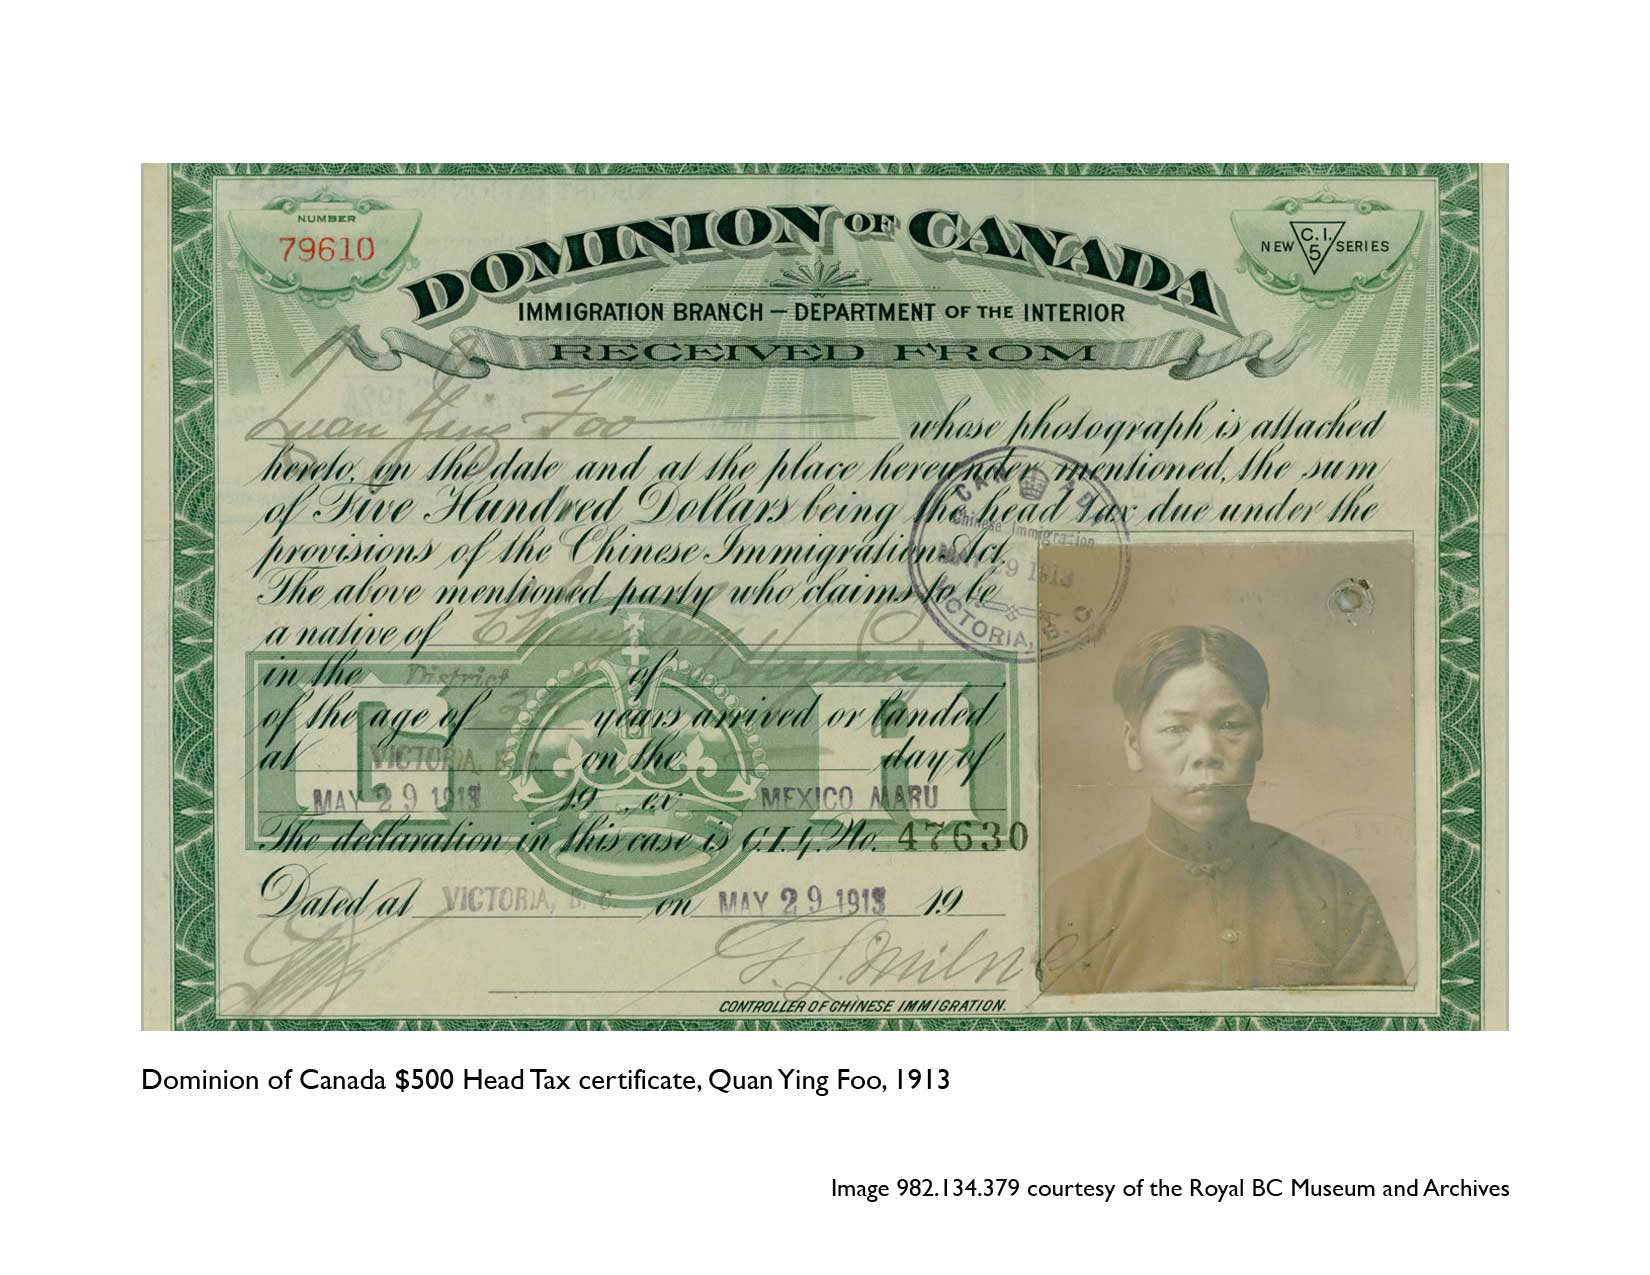 NUMBER
79610
DOMINION OF CANADA
NEW C.I. 5 SERIES
IMMIGRATION BRANCH — DEPARTMENT OF THE INTERIOR
RECEIVED FROM
Quan Ying Foo whose photograph is attached
hereto, on the date and at the place hereunder mentioned, the sum
of Five Hundred Dollars being the head tax due under the
provisions of the Chinese Immigration Act.
The above mentioned party who claims to be
a native of
in the District of
of the age of years, arrived or landed
at VICTORIA, B. C. on the day of
MAY 29 1913 19 , ex MEXICO MARU
The declaration in this case is C.I.4. No. 47630
Dated at VICTORIA, B. C. on MAY 29 1913 19
G. L. Milne
CONTROLLER OF CHINESE IMMIGRATION.
CANADA
Chinese Immigration
MAY 29 1913
VICTORIA, B. C.
G R
Dominion of Canada $500 Head Tax certificate, Quan Ying Foo, 1913
Image 982.134.379 courtesy of the Royal BC Museum and Archives